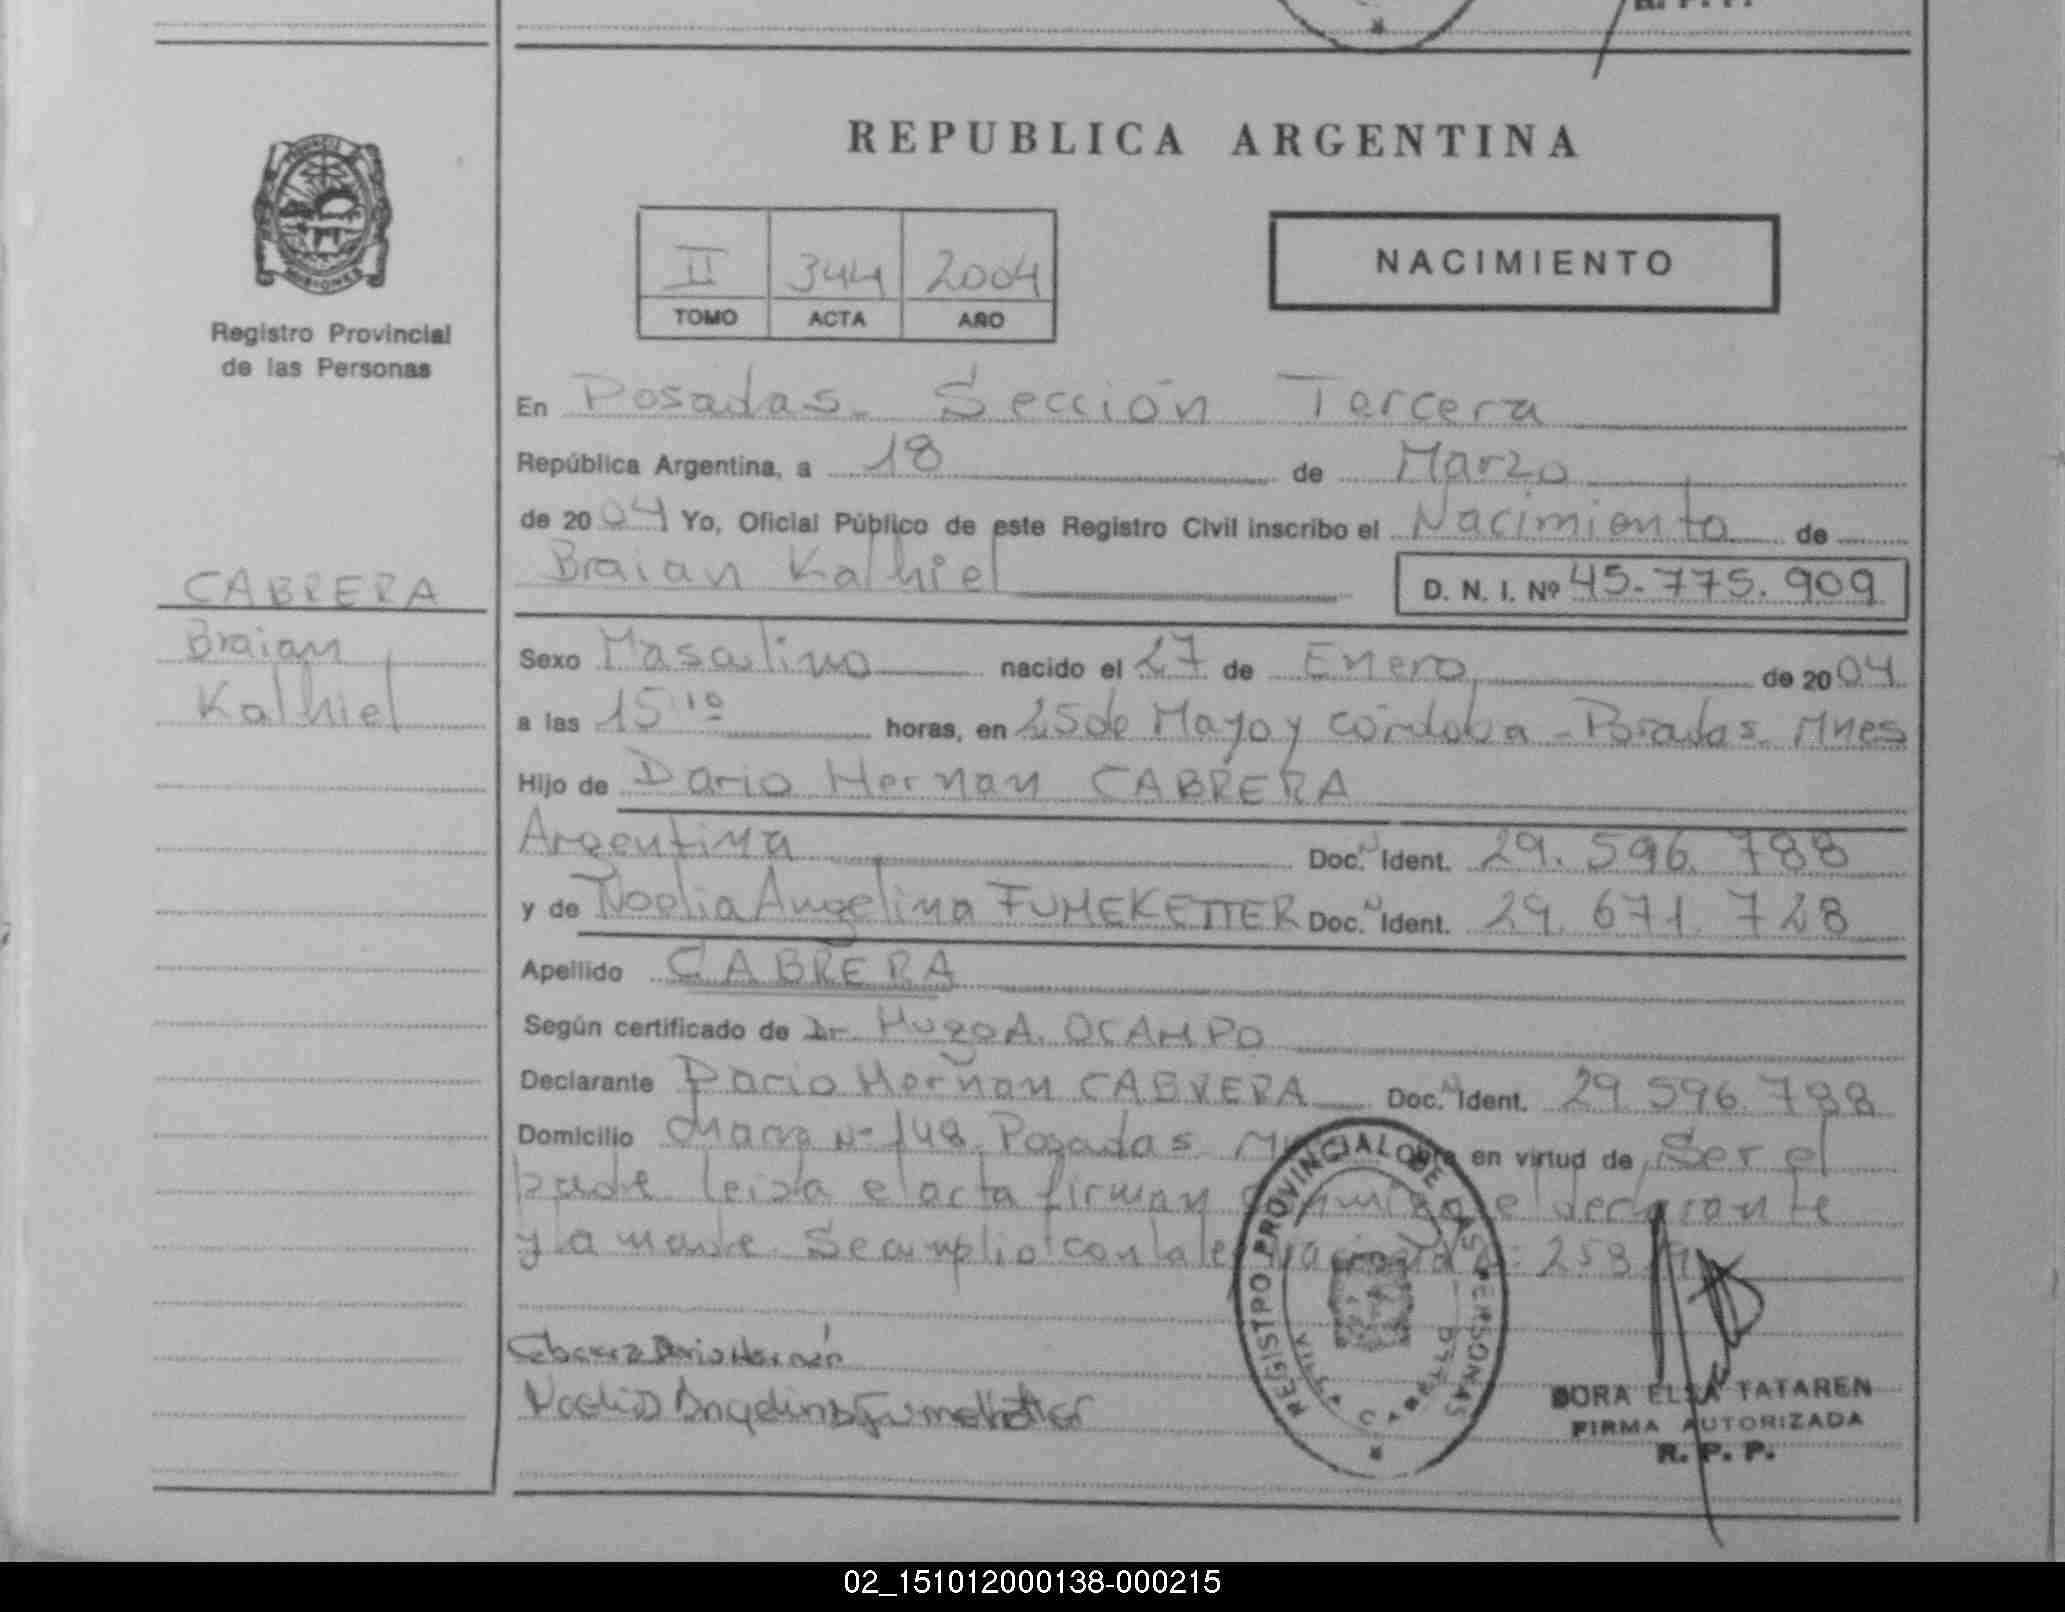 R. P. P.
REPUBLICA ARGENTINA
II 344 2004
TOMO ACTA AÑO
NACIMIENTO
Registro Provincial
de las Personas
En Posadas - Sección Tercera
República Argentina, a 18 de Marzo
de 2004 Yo, Oficial Público de este Registro Civil inscribo el Nacimiento de
Braian Kalhiel D. N. I. Nº 45.775.909
CABRERA
Braian
Kalhiel
Sexo Masculino nacido el 27 de Enero de 2004
a las 15 10 horas, en 25 de Mayo y córdoba - Posadas - Mnes
Hijo de Dario Hernan CABRERA
Argentina Doc. N Ident. 29.596.788
y de Noelia Angelina FUMEKETTER Doc. N Ident. 29.671.728
Apellido CABRERA
Según certificado de Dr. Hugo A. OCAMPO
Declarante Dario Hernan CABRERA Doc. N Ident. 29.596.788
Domicilio Nº 148 Posadas en virtud de Ser el
padre leida el acta firman conmigo el declarante
y la madre. Se cumplio con la ley nacional
Cabrera Dario Hernán
Noelia Angelina Fumeketter
REGISTRO PROVINCIAL DE LAS PERSONAS
DORA ELSA TATAREN
FIRMA AUTORIZADA
R. P. P.
02_151012000138-000215